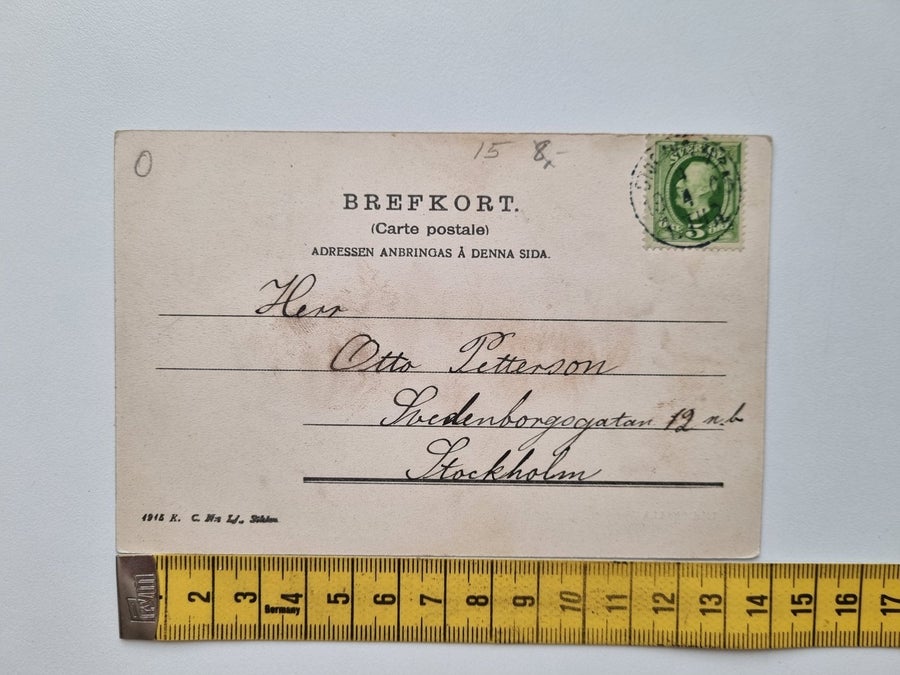 O
15 8,-
SVERIGE
5
BREFKORT.
(Carte postale)
ADRESSEN ANBRINGAS Å DENNA SIDA.
Herr
Otto Petterson
Svedenborgsgatan 12 n.b
Stockholm
1915 K. C. N:s Lj., Sthlm
2 3 4 5 6 7 8 9 10 11 12 13 14 15 16 17
Germany